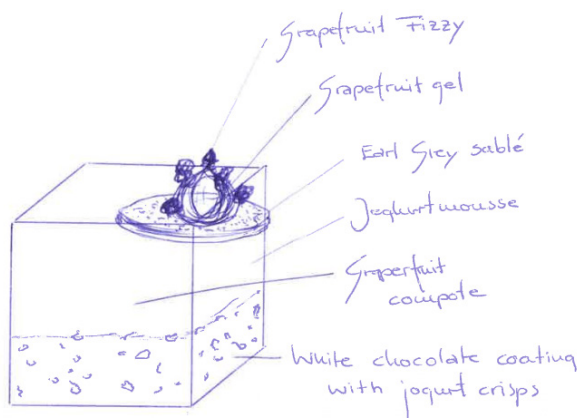 Grapefruit Fizzy
Grapefruit gel
Earl Grey sablé
Joghurtmousse
Graperfruit
compote
White chocolate coating
with jogurt crisps